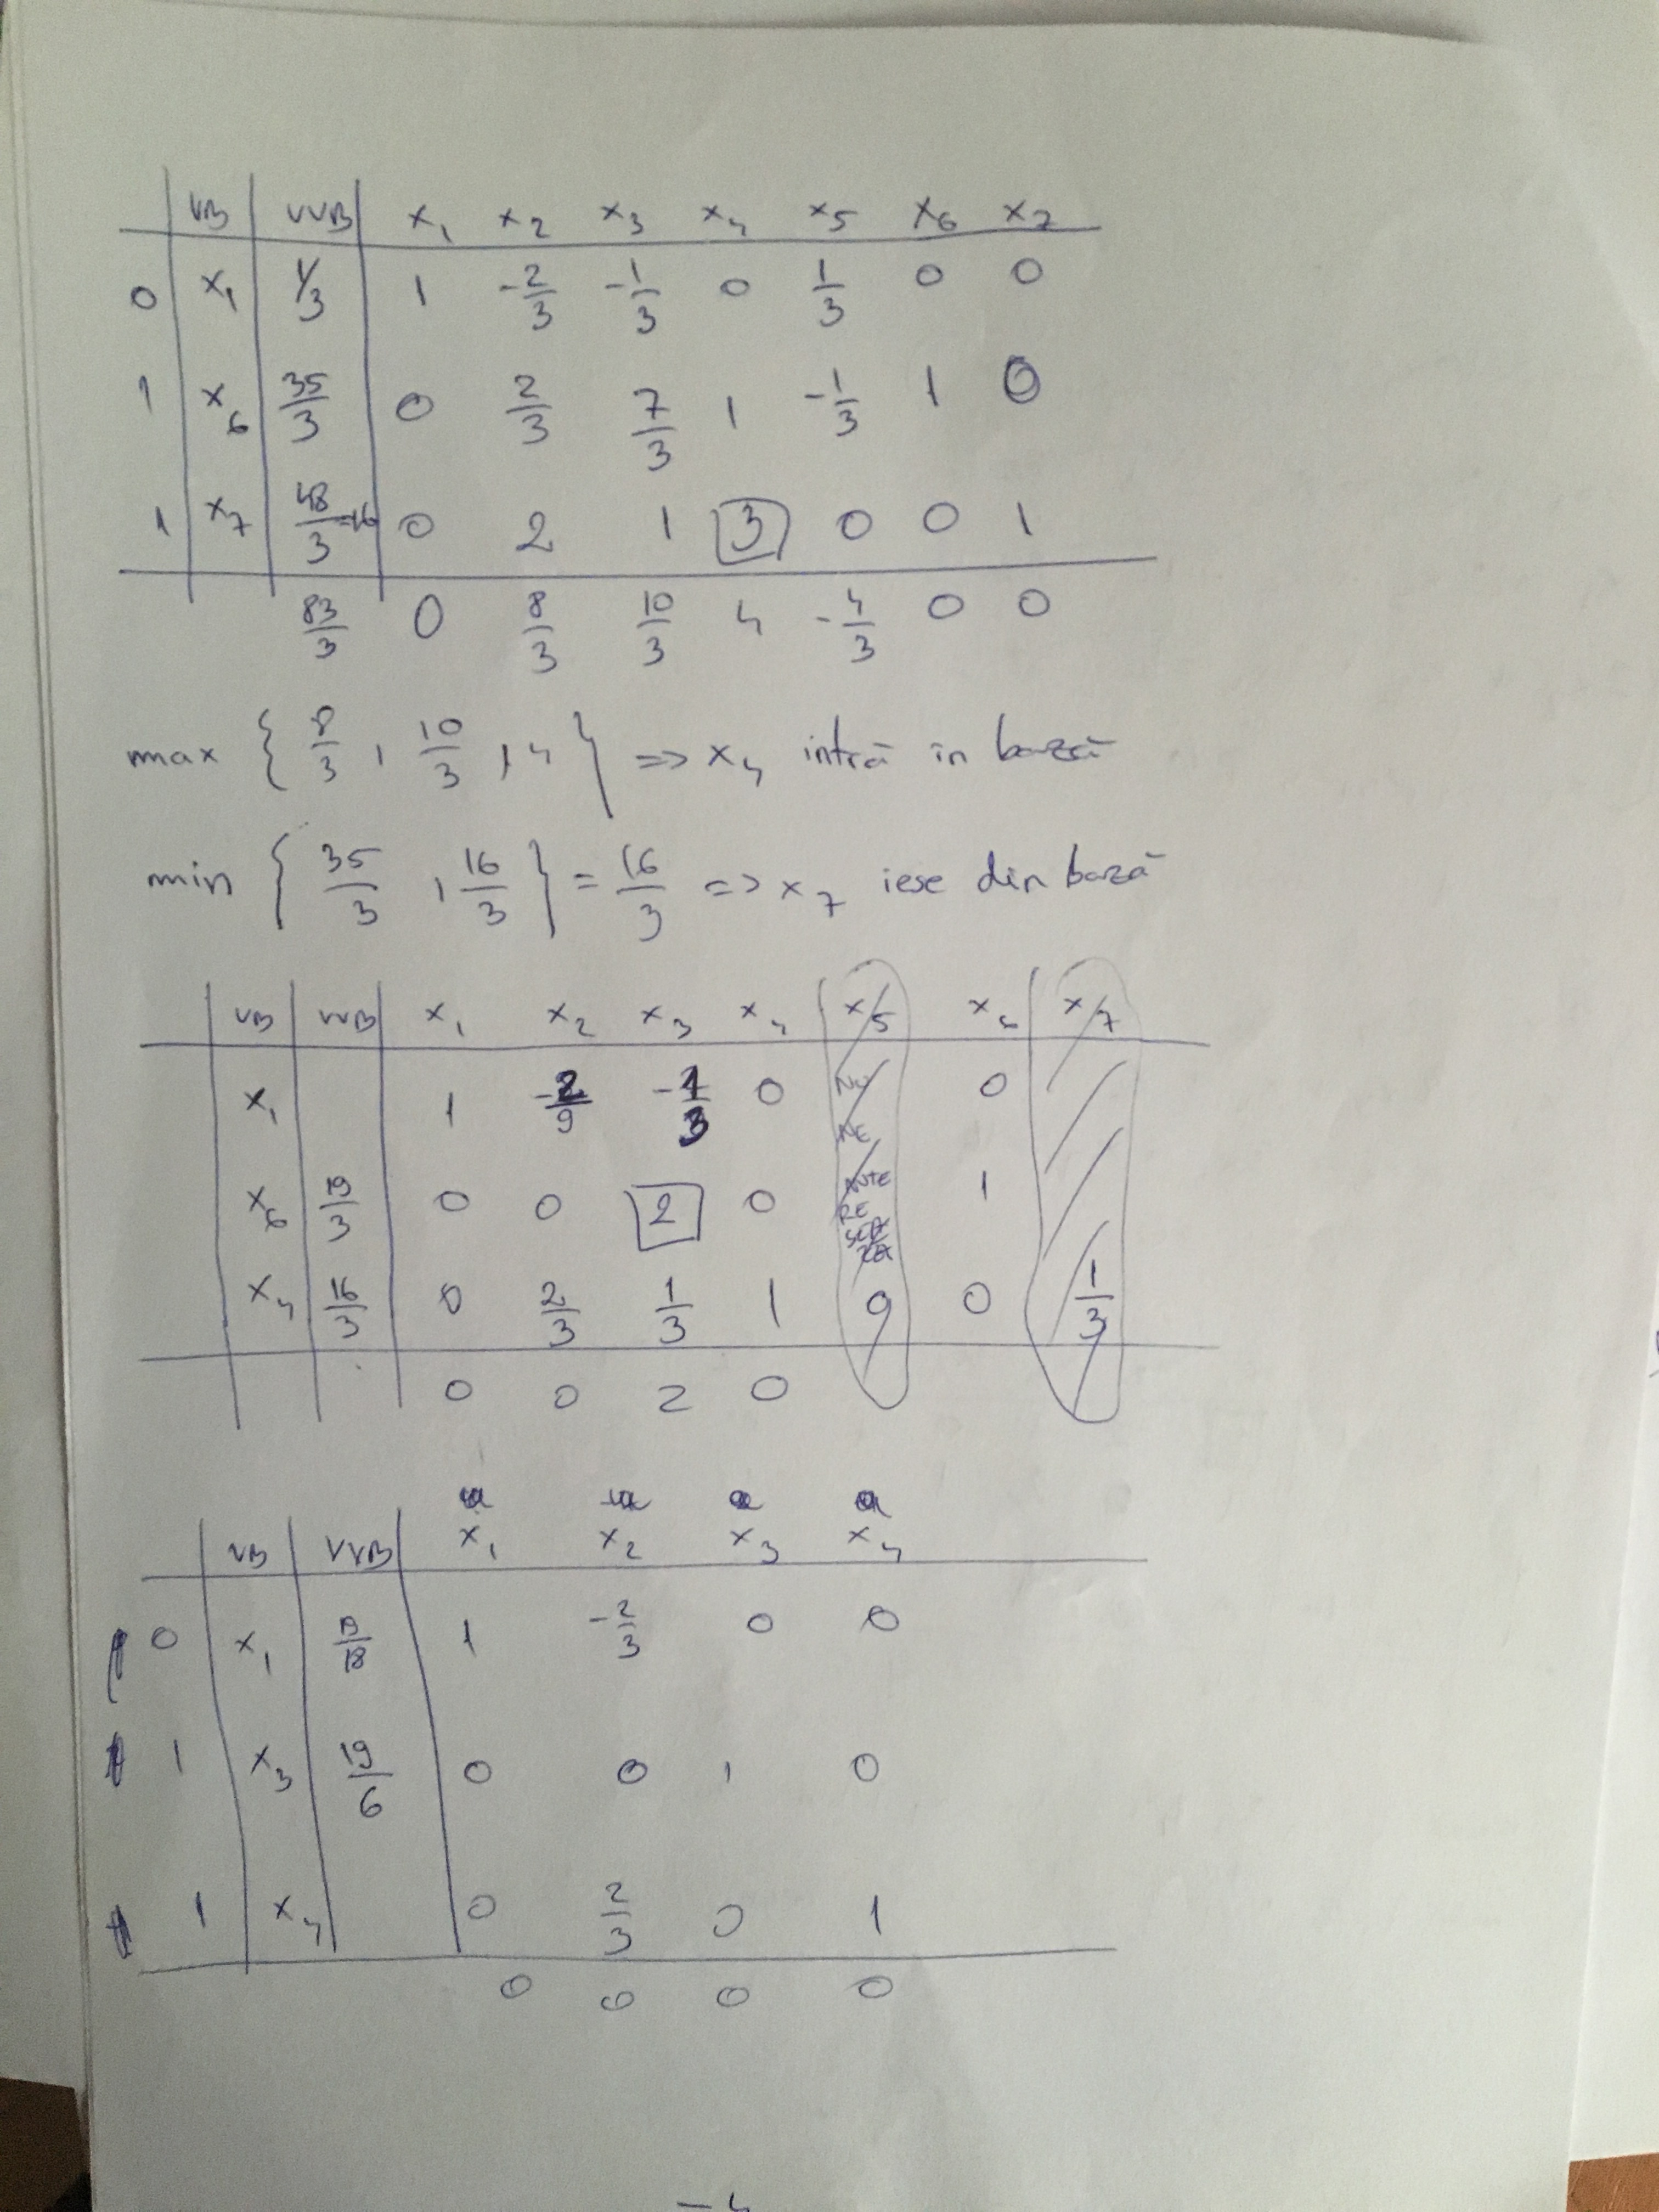 VB VVB x1 x2 x3 x4 x5 x6 x7
0 x1 1/3 1 -2/3 -1/3 0 1/3 0 0
1 x6 35/3 0 2/3 7/3 1 -1/3 1 0
1 x7 48/3=16 0 2 1 3 0 0 1
83/3 0 8/3 10/3 4 -4/3 0 0
max { 8/3 , 10/3 , 4 } => x4 intră în bază
min { 35/3 , 16/3 } = 16/3 => x7 iese din bază
VB VVB x1 x2 x3 x4 x5 x6 x7
x1 1 -2/9 -1/3 0 NU NE 0
x6 19/3 0 0 2 0 1
x4 16/3 0 2/3 1/3 1 0 0 1/3
0 0 2 0
VB VVB x1 x2 x3 x4
0 x1 1 -2/3 0 0
1 x3 19/6 0 0 1 0
1 x4 0 2/3 0 1
0 0 0 0
-4